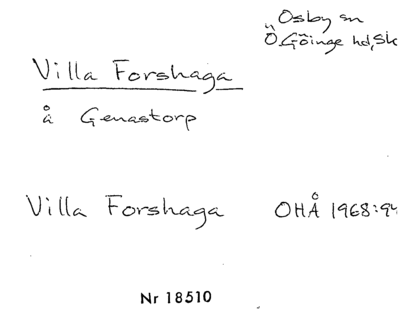 Osby sn
Ö Göinge hd, Sk
Villa Forshaga
å Genastorp
Villa Forshaga OHÅ 1968:94
Nr 18510